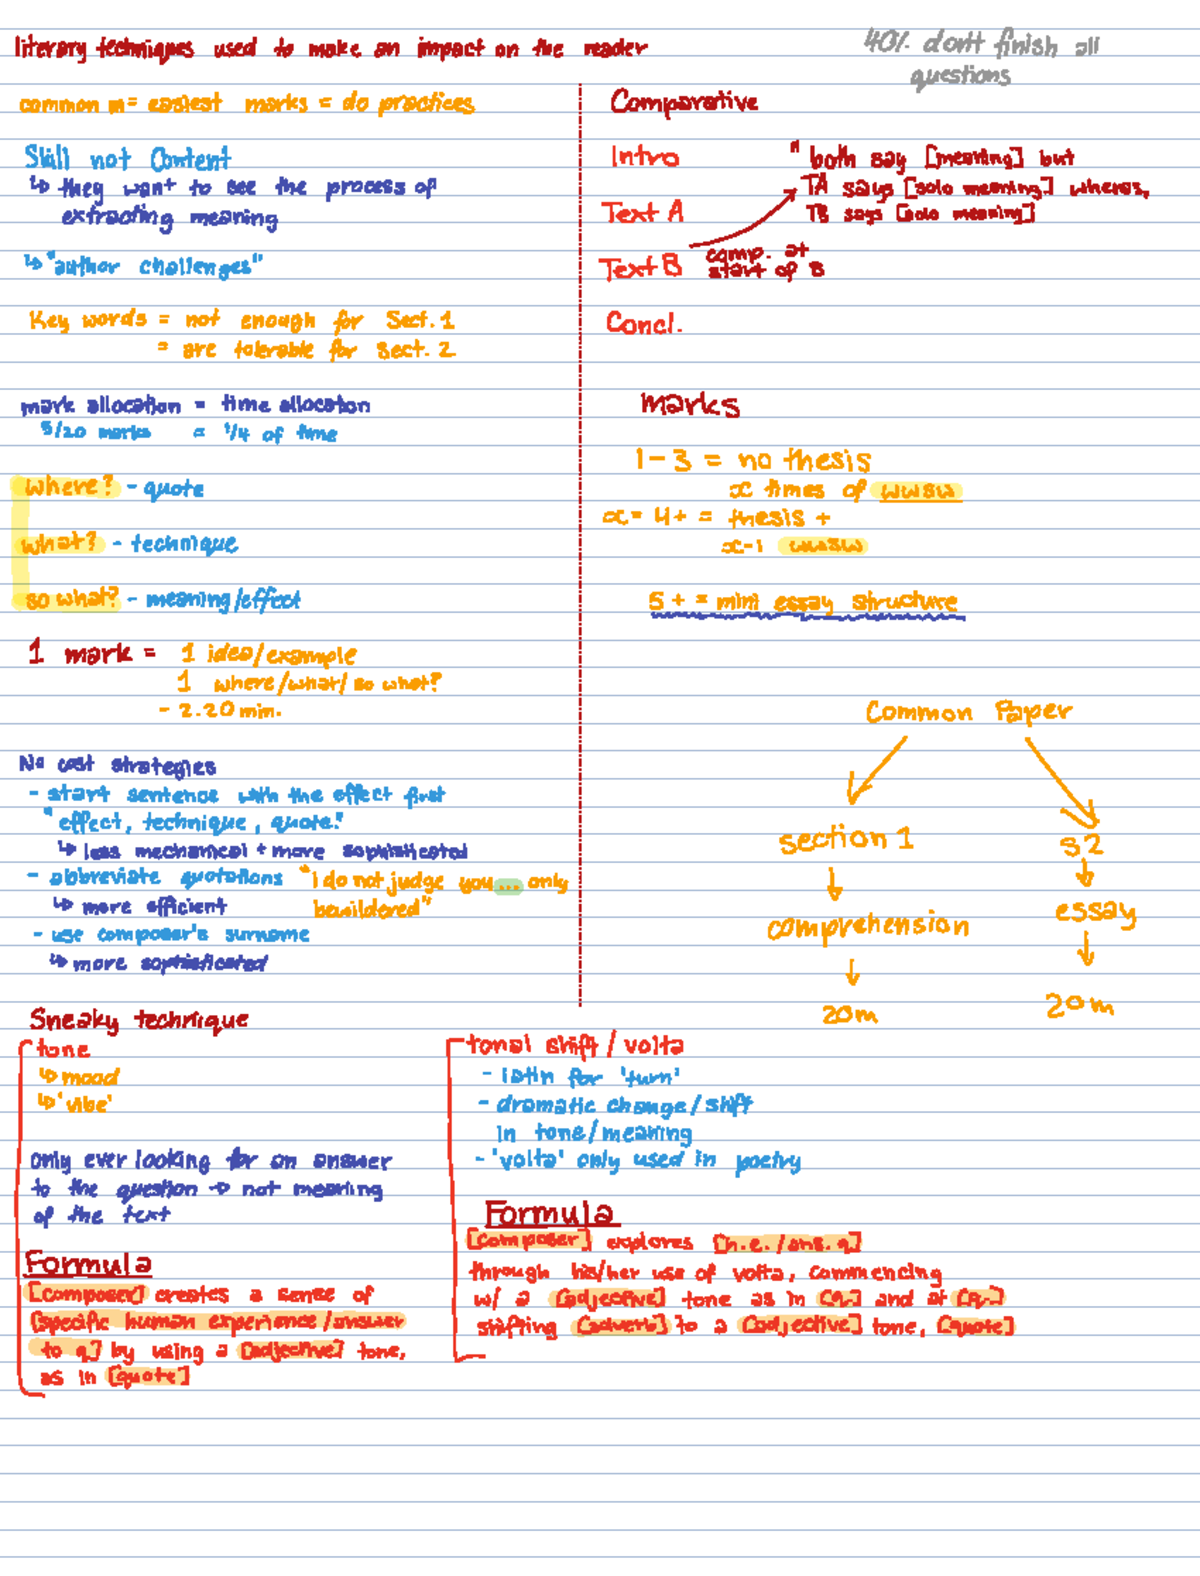 literary techniques used to make an impact on the reader
40% don't finish all
questions
common m = easiest marks = do practices
Skill not Content
↳ they want to see the process of
extracting meaning
↳ "author challenges"
Key words = not enough for Sect. 1
= are tolerable for Sect. 2
mark allocation = time allocation
5/20 marks = 1/4 of time
where? - quote
what? - technique
so what? - meaning/effect
1 mark = 1 idea/example
1 where/what/so what?
- 2.20 min.
No cost strategies
- start sentence with the effect first
"effect, technique, quote."
↳ less mechanical + more sophisticated
- abbreviate quotations "i do not judge you... only
bewildered"
↳ more efficient
- use composer's surname
↳ more sophisticated
Comparative
Intro
Text A
Text B
Concl.
" both say [meaning] but
TA says [solo meaning] whereas,
TB says [solo meaning]
comp. at
start of B
marks
1-3 = no thesis
x times of wwsw
x = 4+ = thesis +
x-1 wwsw
5+ = mini essay structure
Common Paper
section 1
comprehension
20m
S2
essay
20m
Sneaky technique
tone
↳ mood
↳ 'vibe'
only ever looking for an answer
to the question → not meaning
of the text
Formula
[composer] creates a sense of
[specific human experience/answer
to q] by using a [adjective] tone,
as in [quote]
tonal shift / volta
- latin for 'turn'
- dramatic change/shift
in tone/meaning
- 'volta' only used in poetry
Formula
[composer] explores [h.e./ans. q]
through his/her use of volta, commencing
w/ a [adjective] tone as in [q.] and at [q.]
shifting [adverb] to a [adjective] tone, [quote]